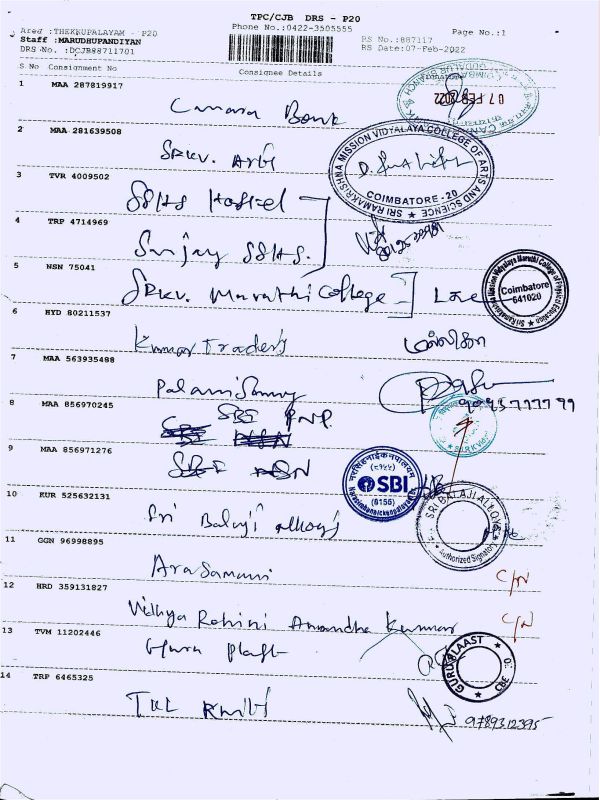 TPC/CJB DRS - P20
Phone No.:0422-3505555
Area :THEKKUPALAYAM - P20
Staff :MARUDHUPANDIYAN
DRS No. :DCJB88711701
RS No.:887117
RS Date:07-Feb-2022
Page No.:1
S.No Consignment No Consignee Details
1 MAA 287819917
Canara Bank
07 FEB 2022
2 MAA 281639508
SRKV. Arts
SRI RAMAKRISHNA MISSION VIDYALAYA COLLEGE OF ARTS AND SCIENCE
COIMBATORE - 20
3 TVR 4009502
SSHS Hostel
4 TRP 4714969
Sanjay SSHS.
5 NSN 75041
SRKV. Maruthi College
Sri Ramakrishna Mission Vidyalaya Maruthi College of Physical Education
Coimbatore
641020
6 HYD 80211537
Kumar Traders
மல்லிகா
7 MAA 563935488
Palanisamy
8 MAA 856970245
SBI PNP.
9 MAA 856971276
SBI NSN
SBI
Narasimhanaickenpalayam
10 KUR 525632131
Sri Balaji alloys
SRI BALAJI ALLOYS
Authorized Signatory
11 GGN 96998895
Arasamani
C/N
12 HRD 359131827
Vidhya Rohini Anandha Kumar
C/N
13 TVM 11202446
Guru Plast
GURU BLAAST
CBE
14 TRP 6465325
TKL Knits
9789312395